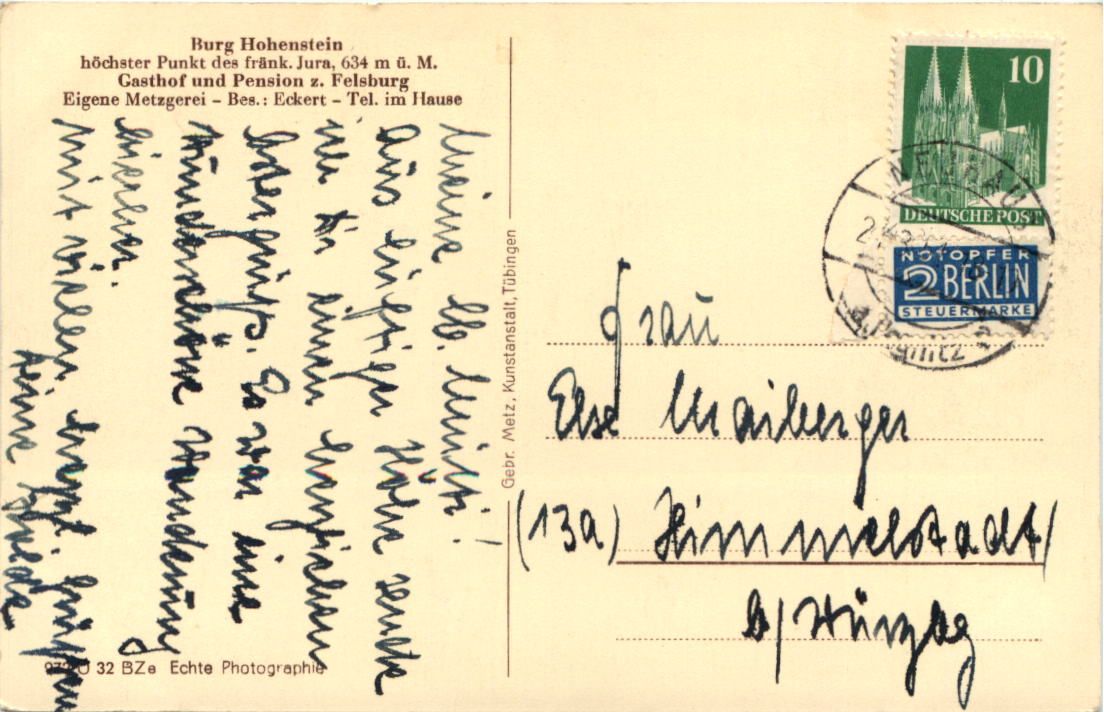 Burg Hohenstein
höchster Punkt des fränk. Jura, 634 m ü. M.
Gasthof und Pension z. Felsburg
Eigene Metzgerei – Bes.: Eckert – Tel. im Hause
Meine lb. Mutti!
Aus luftiger Höhe sende
ich Dir einen herzlichen
Ostergruß. Es war eine
wunderschöne Wanderung
hierher.
Mit vielen, herzl. Grüßen
Deine Frieda
972 U 32 BZe Echte Photographie
Gebr. Metz, Kunstanstalt, Tübingen
10
DEUTSCHE POST
NOTOPFER
2 BERLIN
STEUERMARKE
NEUHAUS
Pegnitz
Frau
Else Maiberger
(13a) Himmelstadt/
b/Würzbg